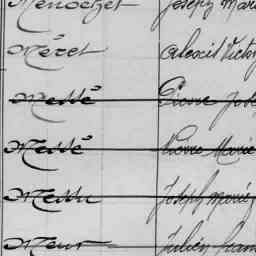 Menochet Joseph Mari
Méret Alexis Victor
Messé Pierre
Messé Pierre Marie
Messu Joseph Marie
Meur Julien